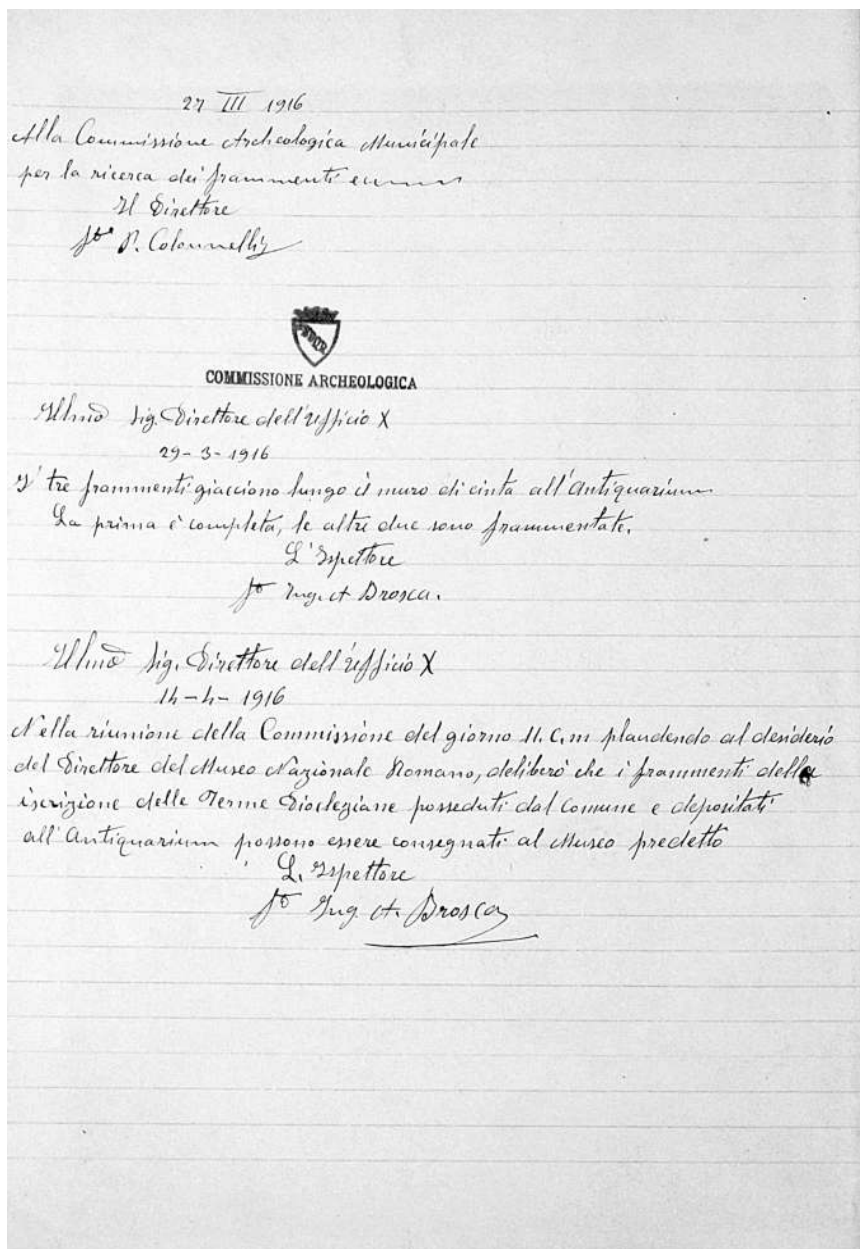 27 III 1916
Alla Commissione Archeologica Municipale
per la ricerca dei frammenti
Il Direttore
fto P. Colonnelli
SPQR
COMMISSIONE ARCHEOLOGICA
Illmo Sig. Direttore dell'Ufficio X
29-3-1916
I tre frammenti giacciono lungo il muro di cinta all'Antiquarium
La prima è completa, le altre due sono frammentate.
L'Ispettore
fto Ing. A Brosca.
Illmo Sig. Direttore dell'Ufficio X
14-4-1916
Nella riunione della Commissione del giorno 11. c.m plaudendo al desiderio
del Direttore del Museo Nazionale Romano, deliberò che i frammenti della
iscrizione delle Terme Dioclegiane posseduti dal comune e depositati
all'Antiquarium possono essere consegnati al Museo predetto
L. Ispettore
fto Ing. A. Brosca